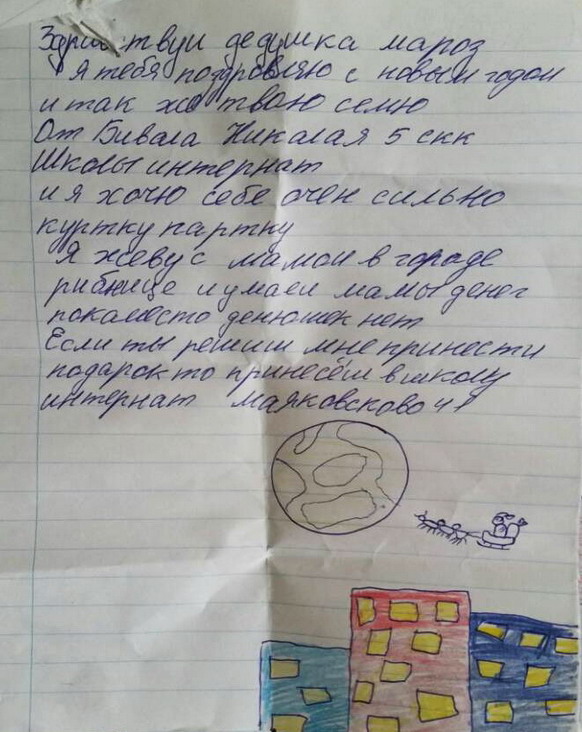 Здравствуи дедушка мароз
я тебя поздровляю с новым годом
и так жо тваю семю
От Бивала Николая 5 скк
Школы интернат
и я хочю себе очен сильно
куртку партку
Я жеву с мамои в городе
рибнице и умаеи мамы денег
покаместо денюшек нет
Если ты решиш мне принести
подарок то принесёш в школу
интернат маяковсково 41